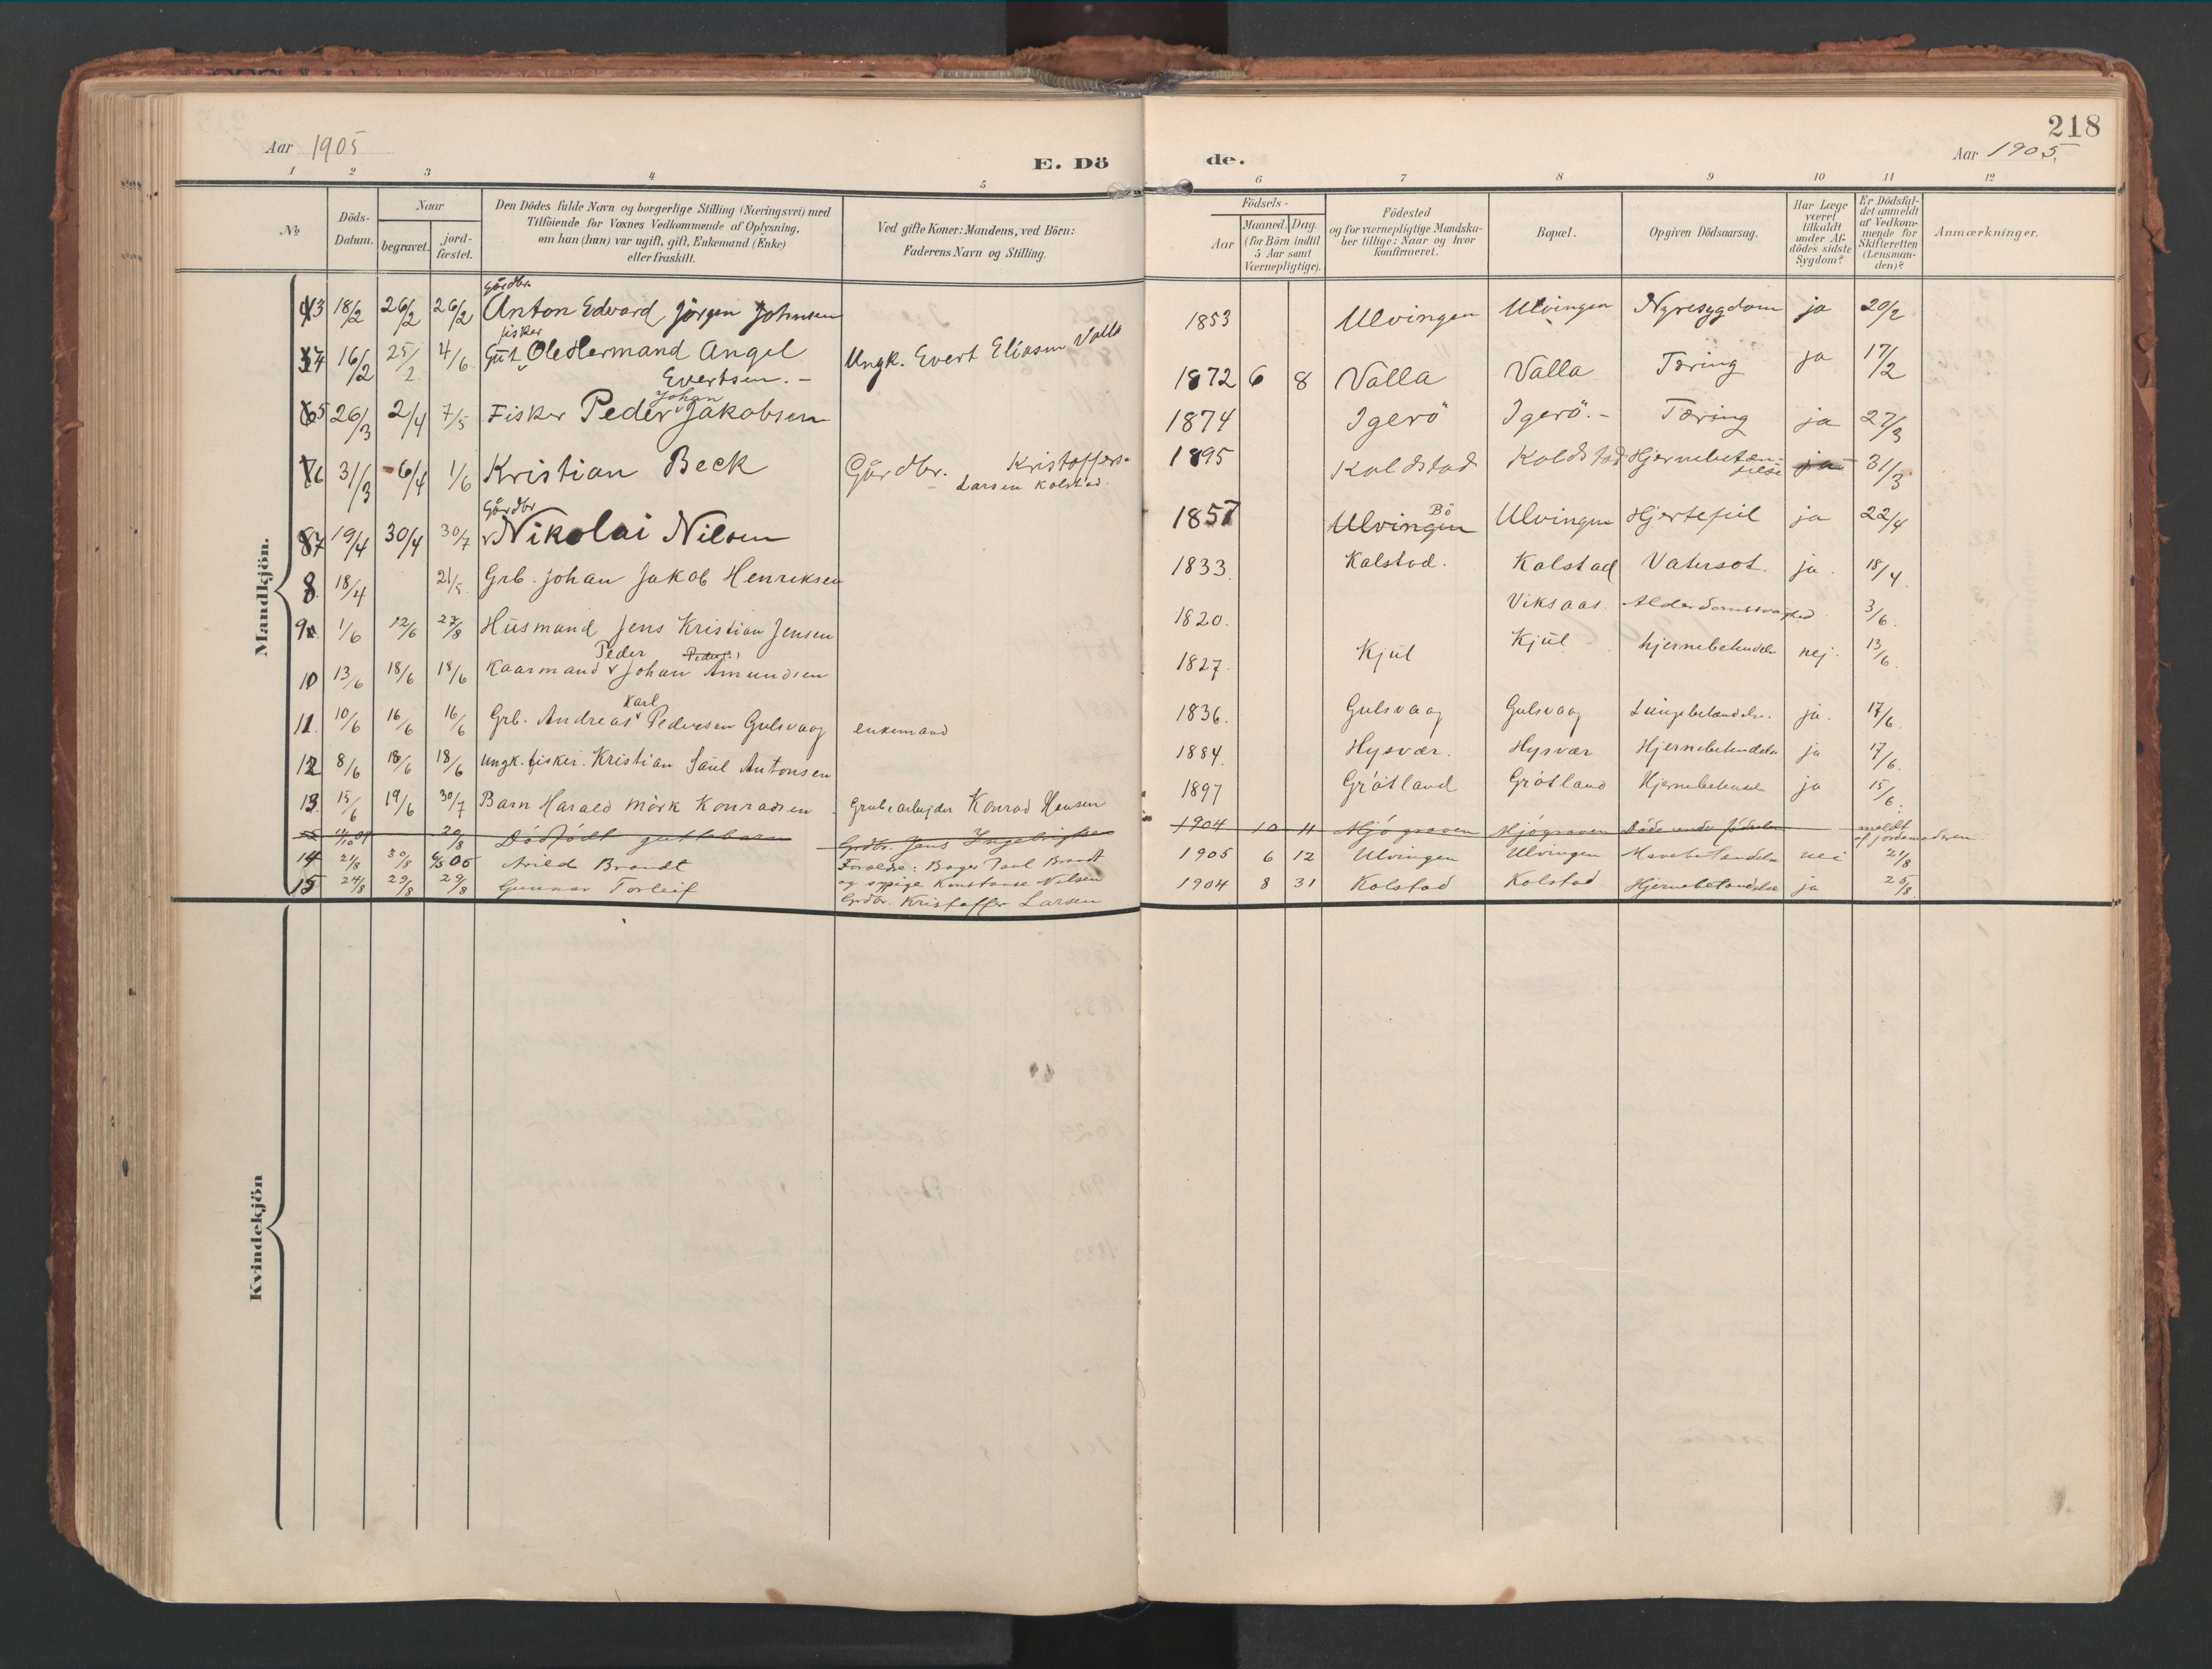 218
Aar 1905
E. Dö de.
Aar 1905.
1 2 3 4 5 6 7 8 9 10 11 12
No
Döds-Datum.
Naar
begravet.
jord-fæstet.
Den Dödes fulde Navn og borgerlige Stilling (Næringsvei) med
Tilföiende for Voxnes Vedkommende af Oplysning,
om han (hun) var ugift, gift, Enkemand (Enke)
eller fraskilt.
Ved gifte Koner: Mandens, ved Börn:
Faderens Navn og Stilling.
Födsels-
Aar
Maaned. Dag.
(for Börn indtil
5 Aar samt
Værnepligtige).
Födested
og for værnepligtige Mandska-
ber tillige: Naar og hvor
konfirmeret.
Bopæl.
Opgiven Dödsaarsag.
Har Læge
været
tilkaldt
under Af-
dödes sidste
Sygdom?
Er Dödsfal-
det anmeldt
af Vedkom-
mende for
Skifteretten
(Lensman-
den)?
Anmærkninger.
Mandkjön.
Gårdbr.
3 18/2 26/2 26/2 Anton Edvard Jörgen Johnsen 1853 Ulvingen Ulvingen Nyresygdom ja 20/2
fisker
4 16/2 25/2 4/6 Gut Ole Hermand Angel Ungk. Evert Eliasen Valla 1872 6 8 Valla Valla Tæring ja 17/2
Evertsen. -
Johan
5 26/3 2/4 7/5 Fisker Peder Jakobsen 1874 Igerö Igerö. - Tæring ja 27/3
6 31/3 6/4 1/6 Kristian Beck Gårdbr. Kristoffer 1895 Koldstad Koldstad Hjernebetæn- ja 31/3
Larsen Kolstad. delse
Gårdbr Bö
7 19/4 30/4 30/7 Nikolai Nilsen 1857 Ulvingen Ulvingen Hjertefeil ja 22/4
8 18/4 21/5 Grb. Johan Jakob Henriksen 1833. Kalstad. Kalstad Vatersot. ja. 18/4.
9 1/6 12/6 27/8 Husmand Jens Kristian Jensen 1820. Viksaas. 3/6.
Peder
10 13/6 18/6 18/6 Kaarmand Johan Amundsen 1827. Kjul Kjul - hjernebetendelse nej. 13/6.
Karl
11. 10/6 16/6 16/6 Grb. Andreas Pedersen Gulsvaag enkemand 1836. Gulsvaag Gulsvaag Lungebetændelse. ja. 17/6.
12 8/6 18/6 18/6 Ungk. fisker. Kristian Saul Antonsen 1884. Hysvær. Hysvær Hjernebetendelse ja 17/6.
13. 15/6 19/6 30/7 Barn Harald Mörk Konradsen Grubearbejder Konrad Hansen 1897 Gröstland Gröstland Hjernebetendelse ja 15/6.
11/10 04 20/8 Dödfödt guttebarn Grdbr. Jens Ingebrigtsen 1904 10 11 Mjögraven Mjögraven Döde under födselen meldt
af jordemoderen
14 21/8 30/8 Arild Brandt Forældre: Bager Paul Brandt 1905 6 12 Ulvingen Ulvingen Mavebetændelse nei 21/8
og sypige Konstanse Nilsen
15 24/8 29/8 29/8 Gunnar Torleif Grdbr. Kristoffer Larsen 1904 8 31 Kolstad Kolstad Hjernebetændelse ja 25/8
Kvindekjön